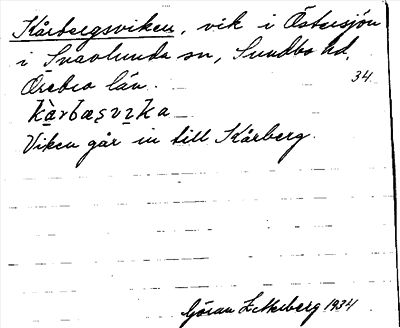 Kårbergsviken, vik i Östersjön
i Snavlunda sn, Sundbo hd,
Örebro län.
34
Viken går in till Kårberg.
Göran Zetterberg 1934